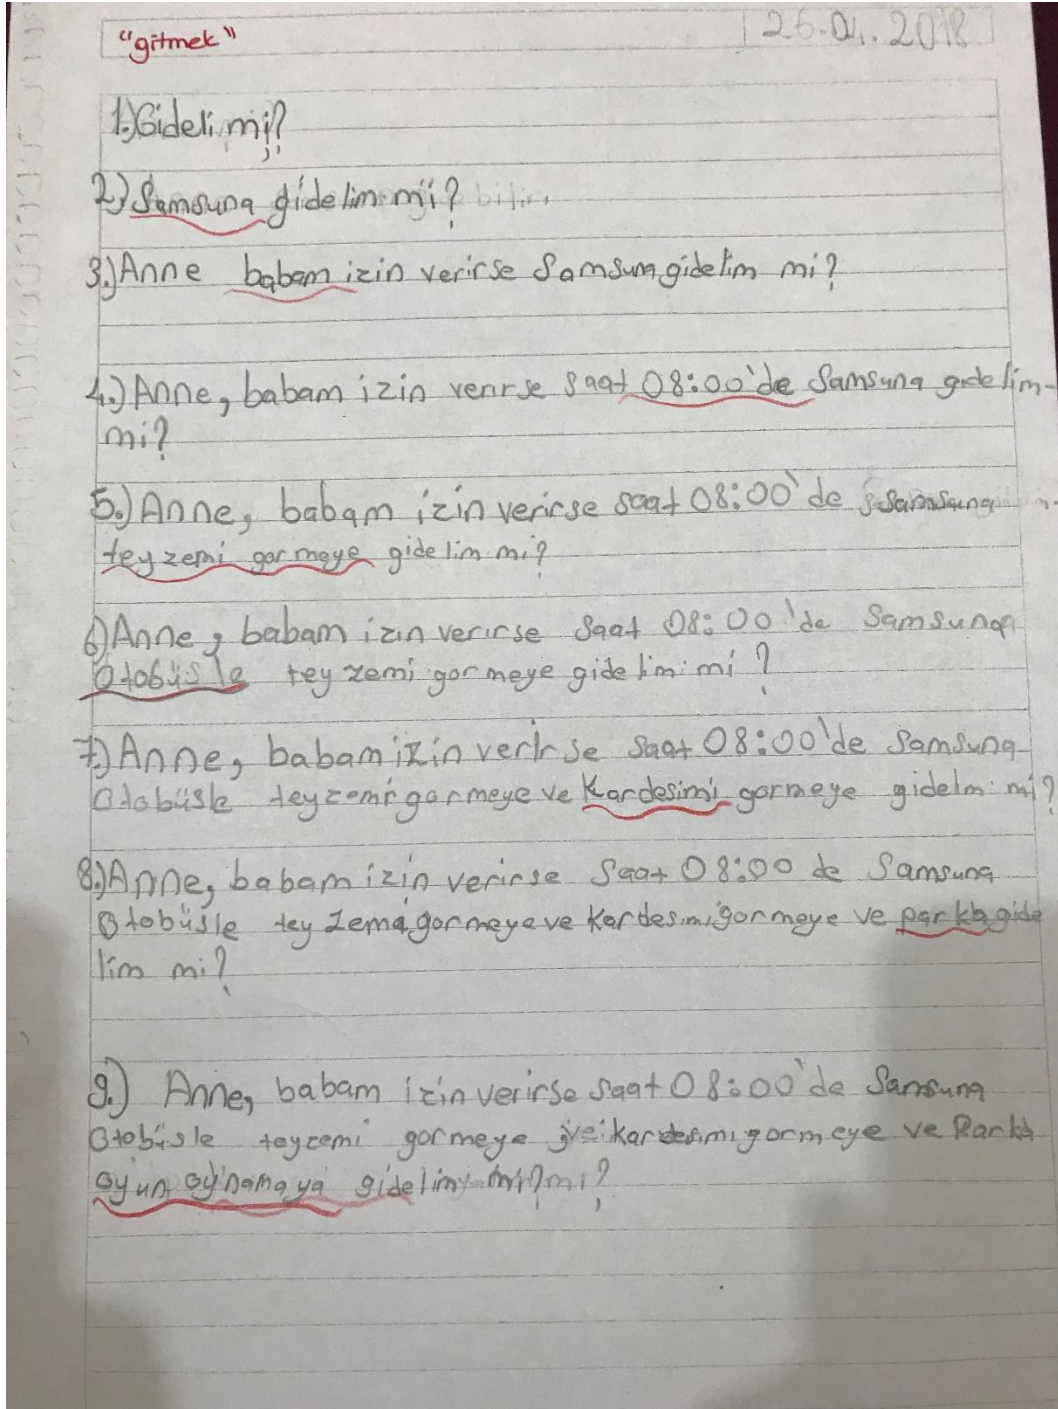 "gitmek"
26.04.2018
1.)Gideli mi?
2.) Samsuna gidelim mi?
3.) Anne babam izin verirse Samsum gidelim mi?
4.) Anne, babam izin verirse saat 08:00'de Samsuna gidelim-
mi?
5.) Anne, babam izin verirse saat 08:00'de Samsuna
teyzemi gormeye gidelim mi?
6) Anne, babam izin verirse saat 08:00'de Samsuna
Otobüsle teyzemi gormeye gidelim mi?
7.) Anne, babam izin verirse saat 08:00'de Samsuna
Otobüsle teyzemi gormeye ve Kardesimi gormeye gidelm mi?
8.) Anne, babam izin verirse saat 08:00 de Samsuna
Otobüsle teyzema gormeye ve kardesimi gormeye ve parkta gide
lim mi?
9.) Anne, babam izin verirse saat 08:00'de Samsuna
Otobüsle teyzemi gormeye ve kardesimi gormeye ve Parka
oyun oynamaya gidelim mi? mi?